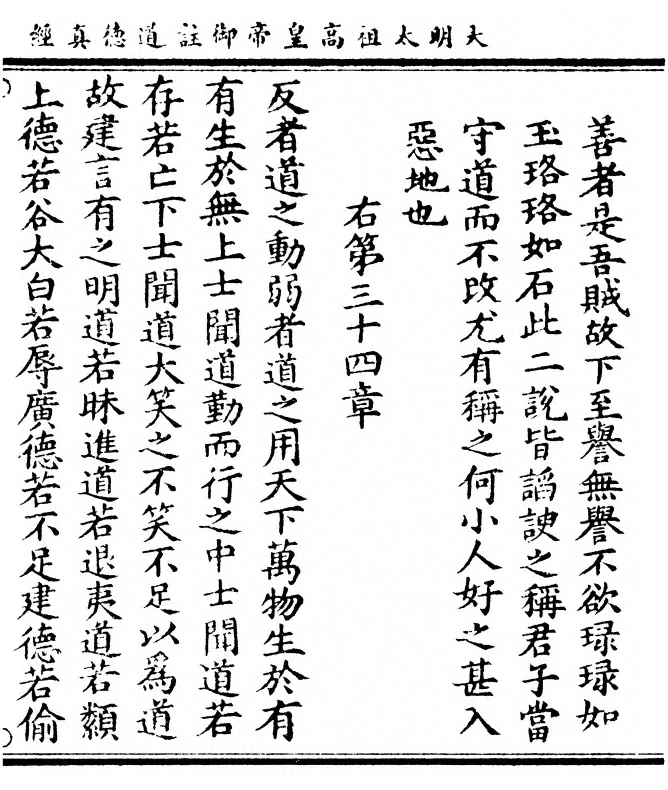 大明太祖高皇帝御註道德真經
善者是吾賊故下至譽無譽不欲琭琭如
玉珞珞如石此二說皆謟諛之稱君子當
守道而不改尤有稱之何小人好之甚入
惡地也
右第三十四章
反者道之動弱者道之用天下萬物生於有
有生於無上士聞道勤而行之中士聞道若
存若亡下士聞道大笑之不笑不足以爲道
故建言有之明道若昧進道若退夷道若纇
上德若谷大白若辱廣德若不足建德若偷